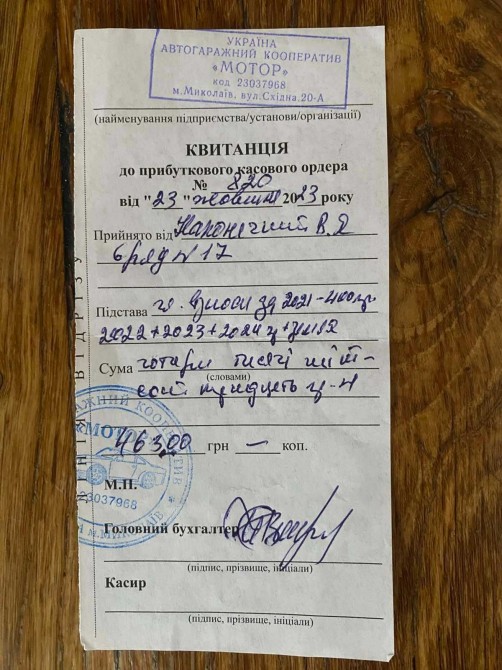 УКРАЇНА
АВТОГАРАЖНИЙ КООПЕРАТИВ
«МОТОР»
код 23037968
м.Миколаїв, вул.Східна.20-А
(найменування підприємства/установи/організації)
КВИТАНЦІЯ
до прибуткового касового ордера
№ 820
від "23" жовтня 2023 року
Прийнято від В.Я
6 ряд №17
Підстава чл. внески за 2021-400гр
2022+2023+2024р+
Сума чотири тисячі шіст-
(словами)
сот тридцять
4630,00 грн — коп.
АЖНИЙ КООПЕРАТИВ
«МОТО
23037968
м.МИКОЛАЇВ
М.П.
Головний бухгалтер
(підпис, прізвище, ініціали)
Касир
(підпис, прізвище, ініціали)
ВІДРІЗУ